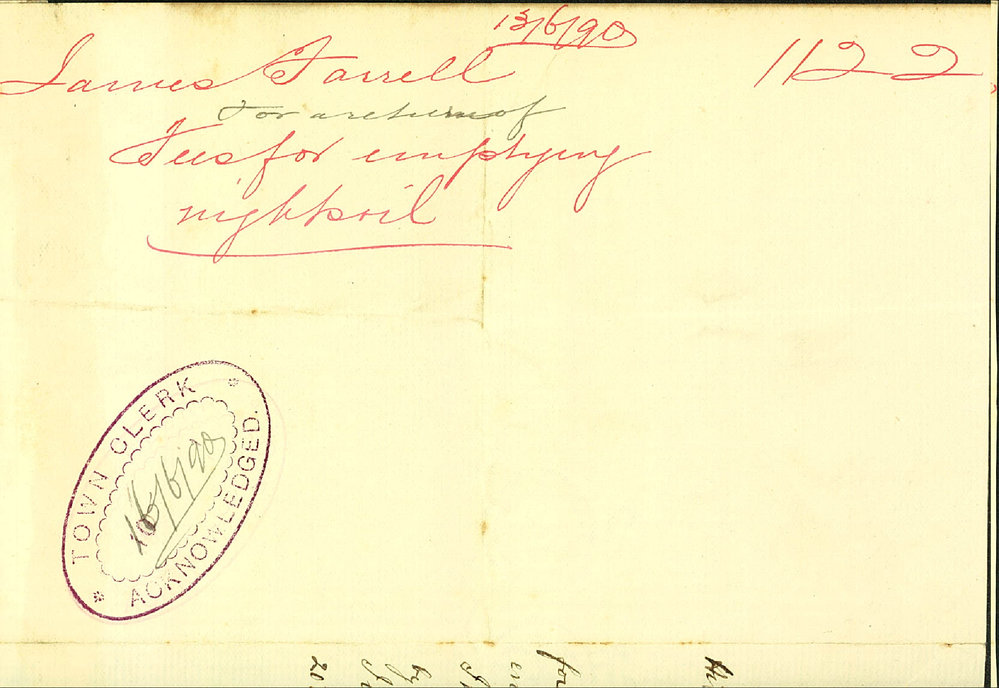 13/6/90
James Farrell 1122
For a return of
Fees for emptying
nightsoil
TOWN CLERK
16/6/90
ACKNOWLEDGED.
for
by
20